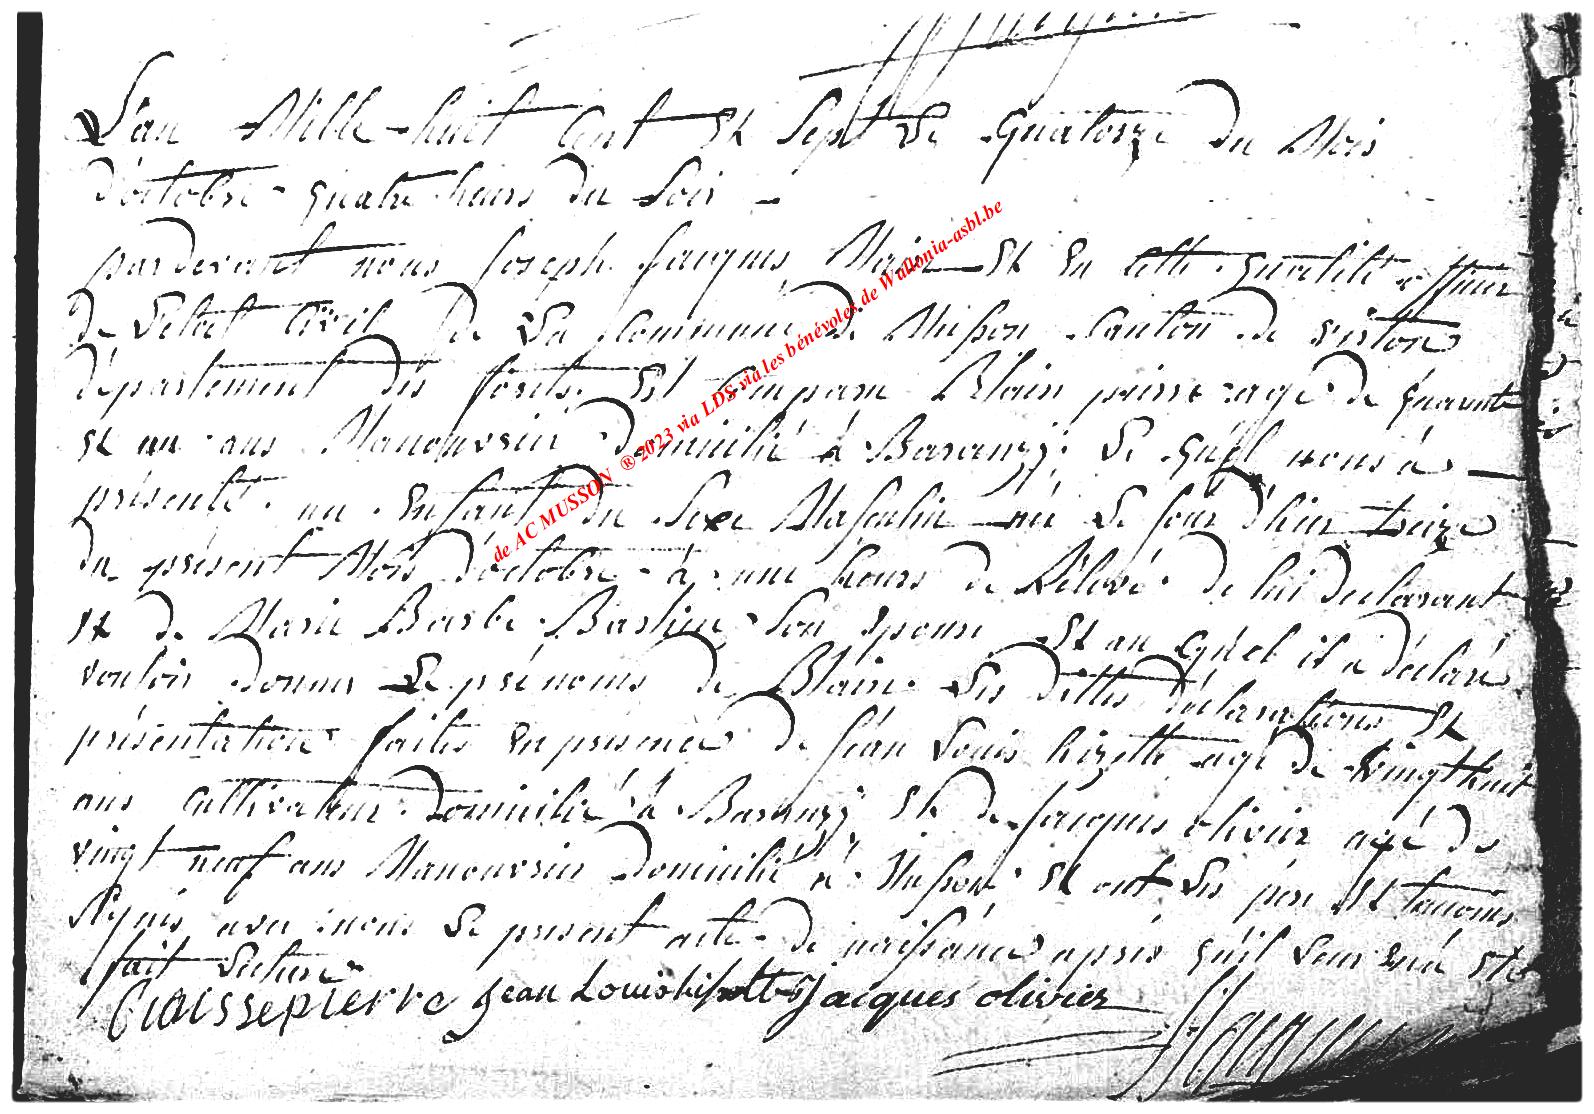 L'an Mille huit Cent Et Sept Le quatorze du Mois
d'octobre quatre heurs du Soir
pardevant nous Joseph Jacques Maire Et En Cette qualité officier
de L'etat Civil de La Commune de Musson Canton de virton
département des forêts, Est Comparu Blain pierre agé de quarante
Et un ans Manouvrier domicilié à Baranzy. Le quel nous à
présenté un Enfant du Sexe Masculin né Le jour d'hier treize
du présent Mois d'octobre à une heurs de Rélevé de lui declarant
Et de Marie Barbe Bastin Son Epouse Et au quel il a déclaré
vouloir donner Le prénoms de Blain. Les dittes déclarations Et
présentation faites En présence de Jéan Louis hizette agé de vingt huit
ans Cultivateur domicilié à Baranzy Et de Jacques olivier agé de
vingt neuf ans Manouvrier domicilié à Musson Et ont Les pere Et temoins
Signés avec nous Le présent acte de naissance après qu'il Leur En à Eté
fait Lecture
pierre Jean Louis Jacques olivier
de AC MUSSON ® 2023 via LDS via les bénévoles de Wallonia-asbl.be